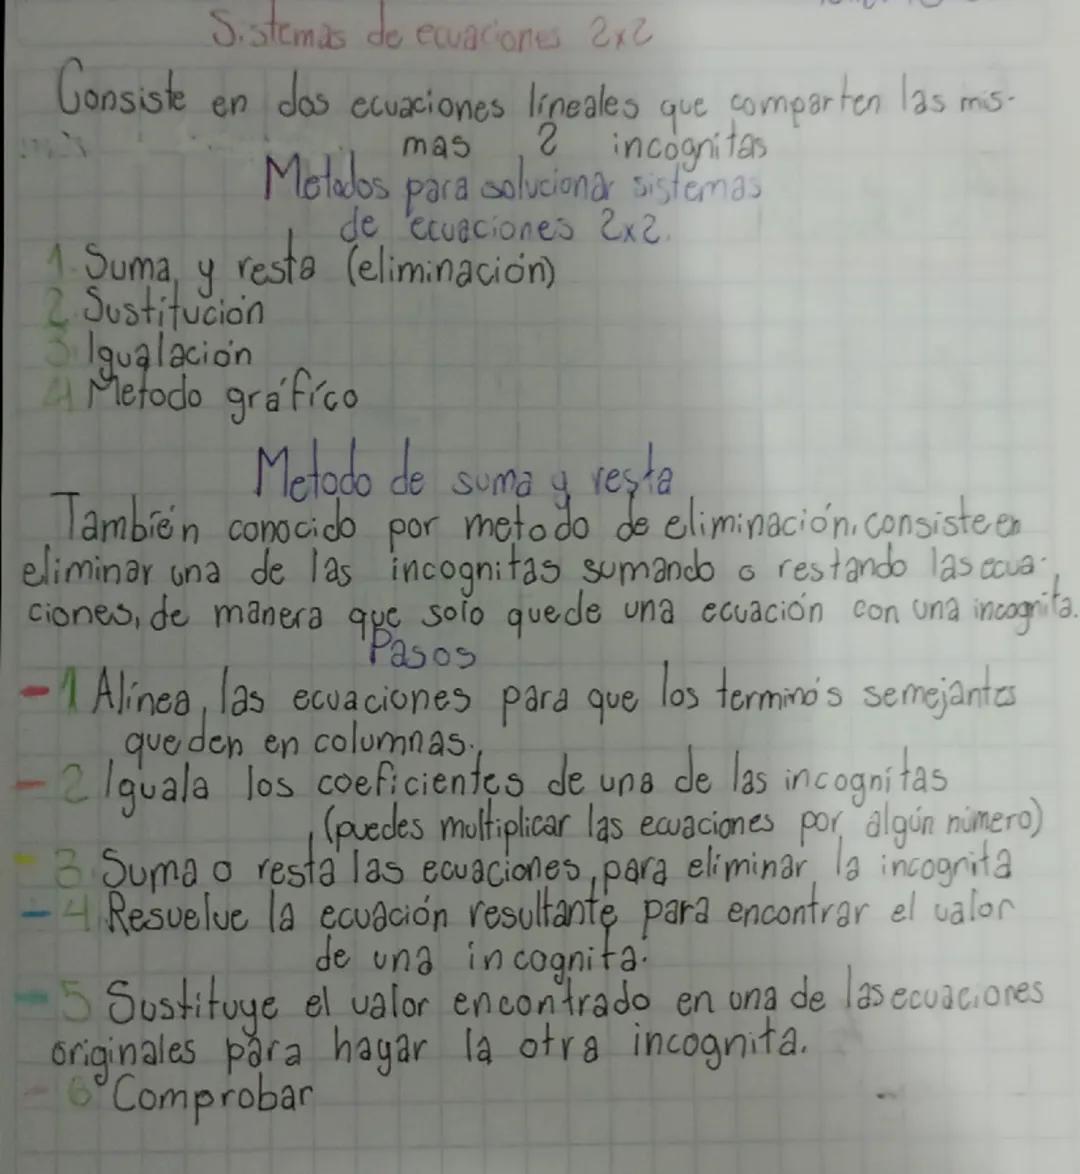 Sistemas de ecuaciones 2x2
Consiste en dos ecuaciones líneales que comparten las mis-
mas 2 incognitas
Metodos para solucionar sistemas
de ecuaciones 2x2.
1. Suma y resta (eliminación)
2. Sustitución
3. Igualación
4 Metodo gráfico
Metodo de suma y resta
También conocido por metodo de eliminación. consiste en
eliminar una de las incognitas sumando o restando las ecua-
ciones, de manera que solo quede una ecuación con una incognita.
Pasos
- 1 Alinea las ecuaciones para que los termino's semejantes
queden en columnas.
- 2 Iguala los coeficientes de una de las incognitas
(puedes multiplicar las ecuaciones por algún número)
- 3. Suma o resta las ecuaciones, para eliminar la incognita
- 4. Resuelve la ecuación resultante para encontrar el valor
de una incognita.
- 5 Sustituye el valor encontrado en una de las ecuaciones
originales para hayar la otra incognita.
- 6° Comprobar